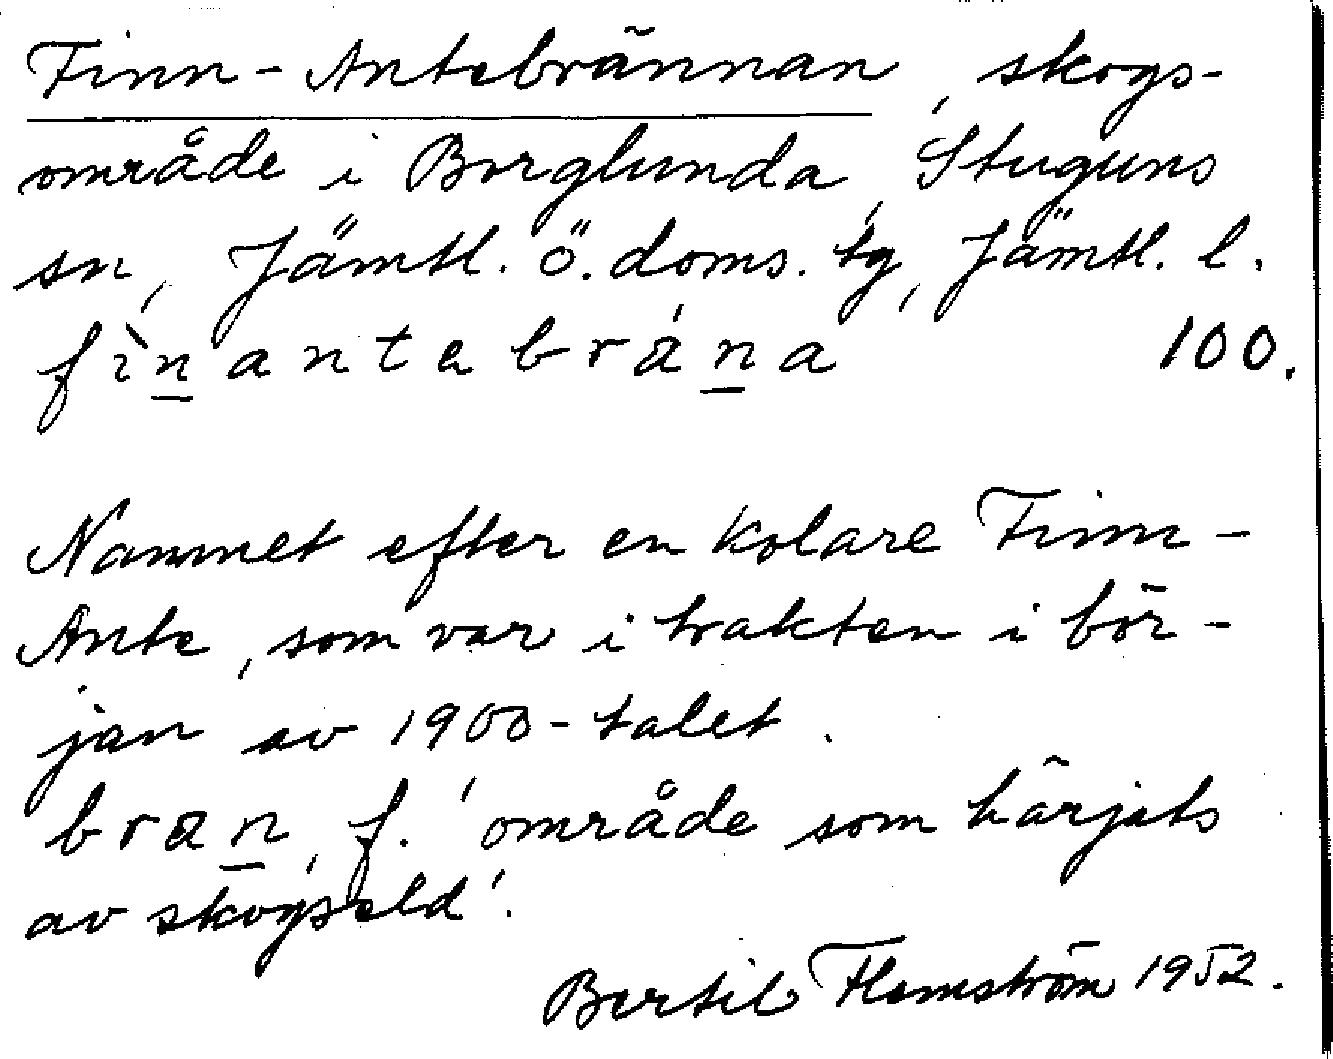 Finn-Antebrännan, skogs-
område i Borglunda, Stuguns
sn, Jämtl. ö. doms. tg, Jämtl. l.
fìn̲antebrán̲a 100.
Namnet efter en kolare Finn-
Ante, som var i trakten i bör-
jan av 1900-talet.
bran̲, f. 'område som härjats
av skogseld'.
Bertil Flemström 1952.